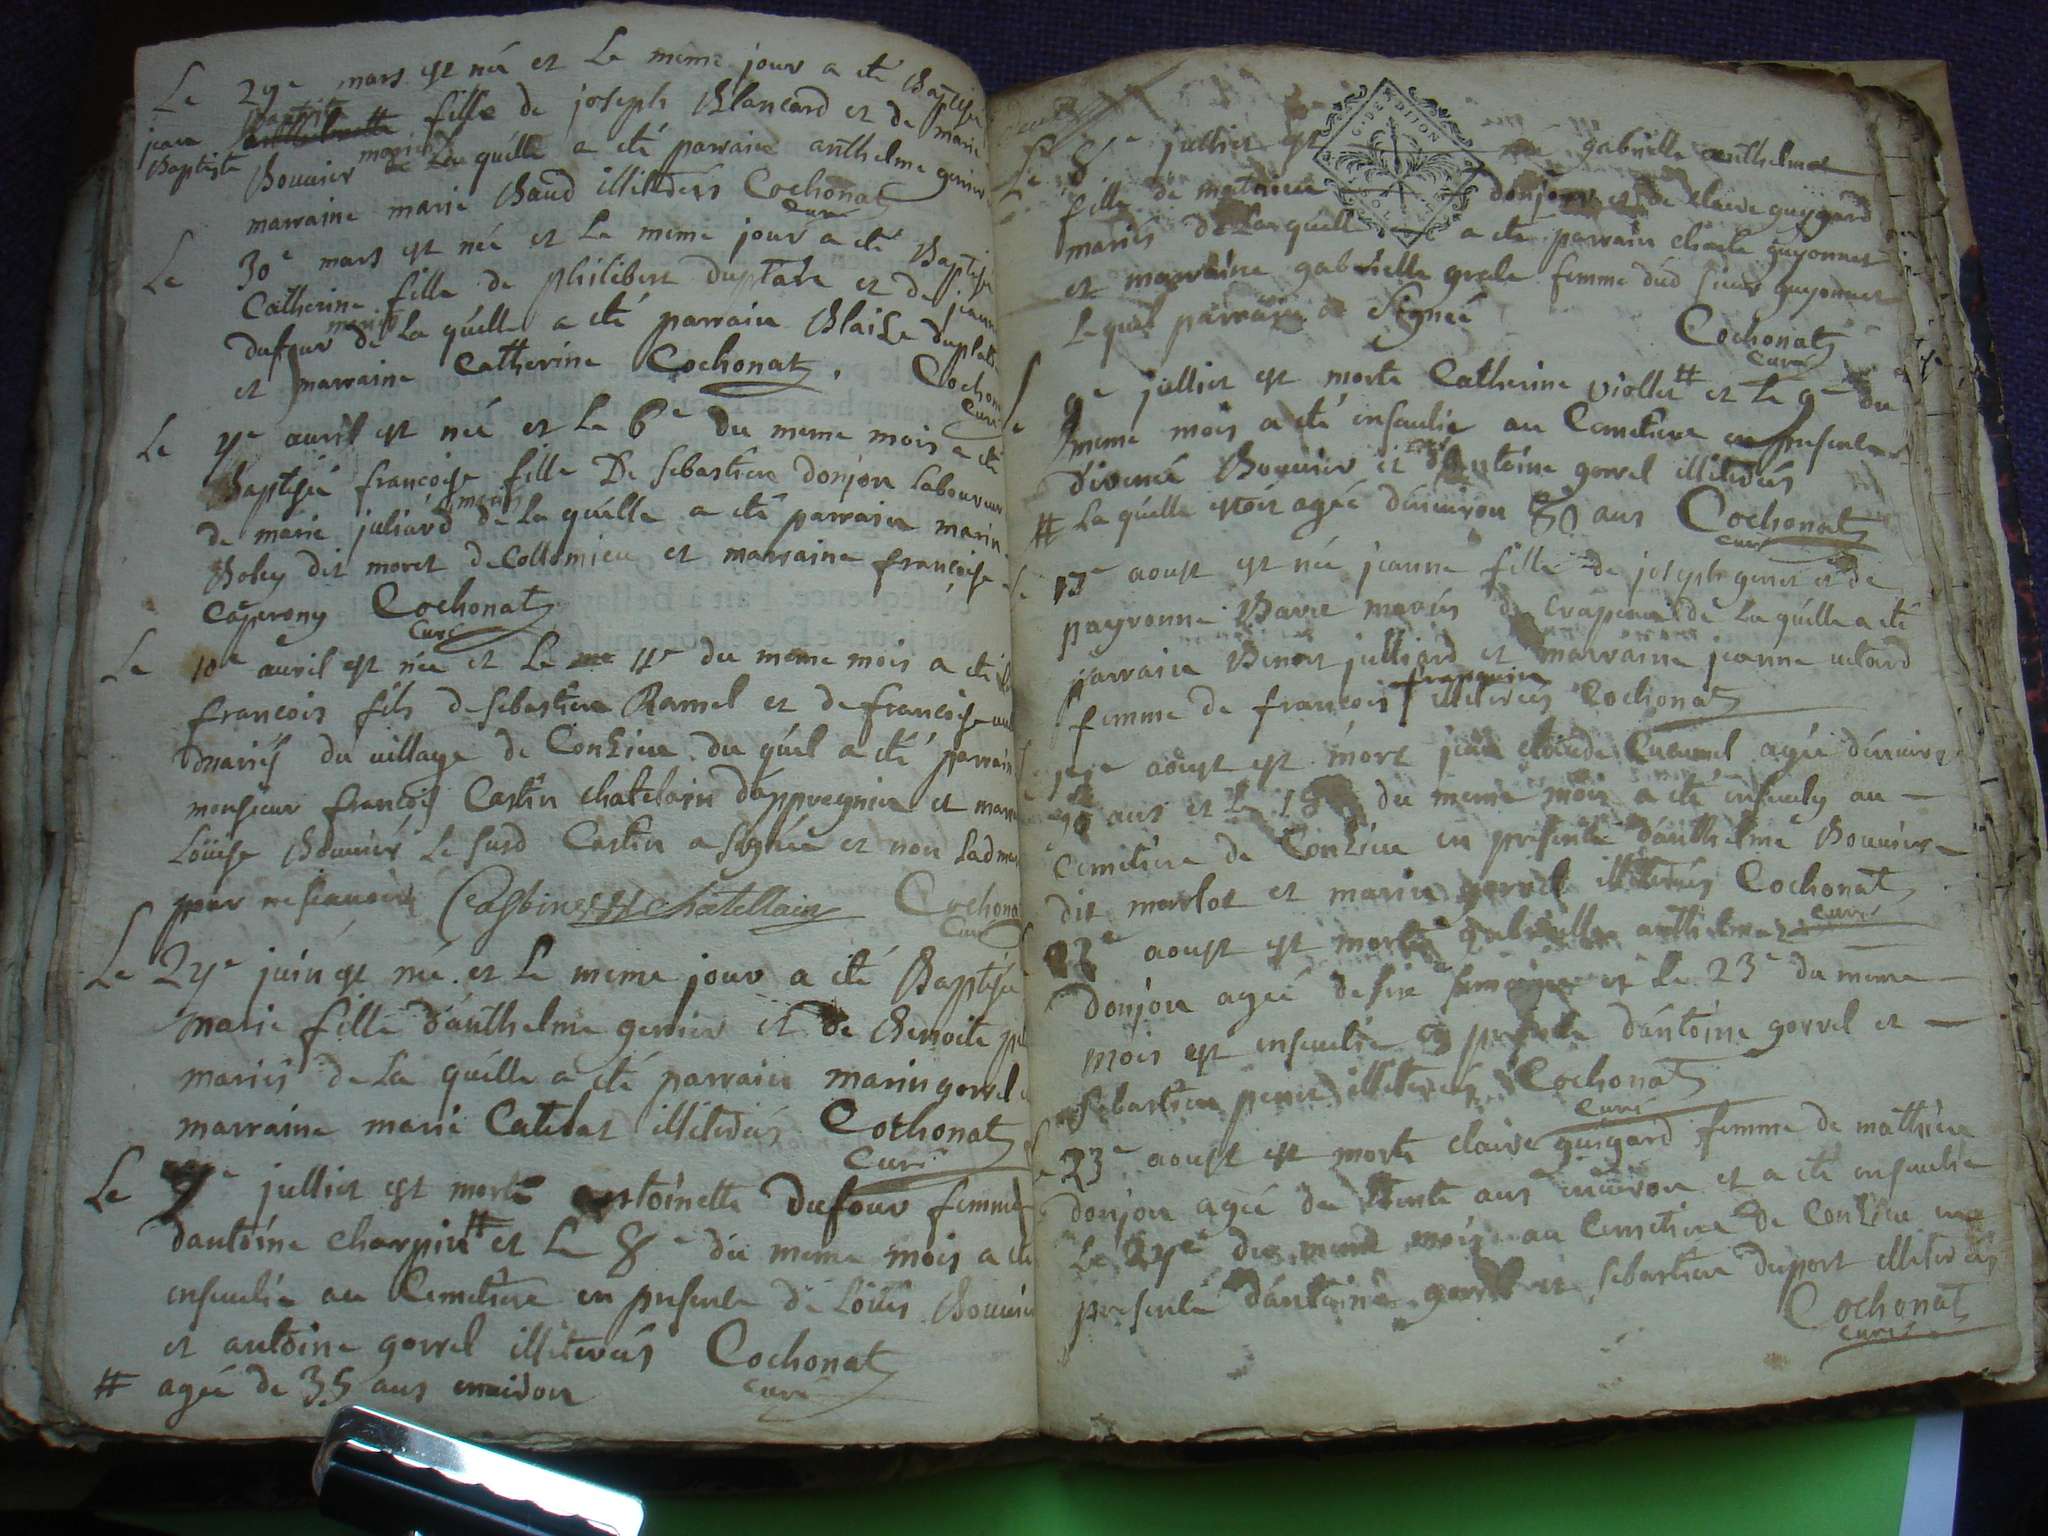 Le 29e mars est née et Le meme jour a eté Baptisée
jean Baptiste fille de joseph Blancard et de marie
Bouvier mariés de La quélle a eté parrain anthelme genier
marraine marie Baud illiterés Cochonat
curé
Le 30e mars est née et Le meme jour a eté Baptisée
Catherine fille de philibert duplatre et de jeanne
dufour mariés de La quélle a eté parrain Blaise duplatre
et marraine Catherine Cochonat. Cochonat
curé
Le avril est née et Le 6e du meme mois a eté
Baptisée françoise fille De Sebastien donjon Laboureur
de marie juliard mariés de La quélle a eté parrain marin
Bolley dit moret de Collomieu et marraine françoise
Caperony Cochonat
Curé
Le 10e avril est née et Le 11e du meme mois a eté
françois fils de Sebastien Ramel et de françoise
mariés du village de Conzieu du quél a eté parrain
monsieur françois Castin chatelain dappregnin et marraine
Loüise Bouvier Le susd Castin a signée et non Ladme
pour ne scavoir Castin chatellain Cochonat
Curé
Le 27e juin est née et Le meme jour a eté Baptisée
marie fille d'anthelme genier et de Benoite
mariés de La quélle a eté parrain marin gorrel
marraine marie Catelat illiterés Cochonat
Curé
Le 7e julliet est morte antoinette dufour femme
dantoine charpin # et Le 8e du meme mois a eté
enseulie au Cemetiere en presente de Loüis Bouvier
et antoine gorrel illiterés Cochonat
curé
# agée de 35 ans environ
G. DE DIJON
Le 8e julliet est née gabrielle anthelmaz
fille de mathieu donjon et de claire guygard
mariés de La quélle a eté parrain charle guyonnet
et marraine gabrielle grele femme dud sieur guyonnet
Le quel parrain a signée Cochonat
Curé
Le 9e julliet est morte Catherine viollet # et Le 9e du
meme mois a eté enseulie au Cemetiere en presente
Bouvier et d'antoine gorrel illiterés
# La quélle etoit agée d'environ ans Cochonat
curé
Le 13e aoust est née jeanne fille de joseph genet et de
payronne Barre mariés de de La quélle a eté
parrain Benoit julliard et marraine jeanne
femme de françois illiterés Cochonat
Le aoust est mort jean claude agée d'environ
ans et Le du meme mois a eté enseuly au
Cemetiere de Conzieu en presente d'anthelme Bouvier
dit morlot et marin gorrel illiterés Cochonat
curé
22e aoust est morte gabrielle anthelmaz
donjon agée de six semaine et Le 23e du meme
mois est enseulie en presente d'antoine gorrel et
Sebastien illiterés Cochonat
Curé
Le 23e aoust est morte claire guigard femme de mathieu
donjon agée de trente ans environ et a eté enseulie
Le du meme mois au Cemetiere de Conzieu en
presente d'antoine gorrel et sebastien duport illiterés
Cochonat
curé